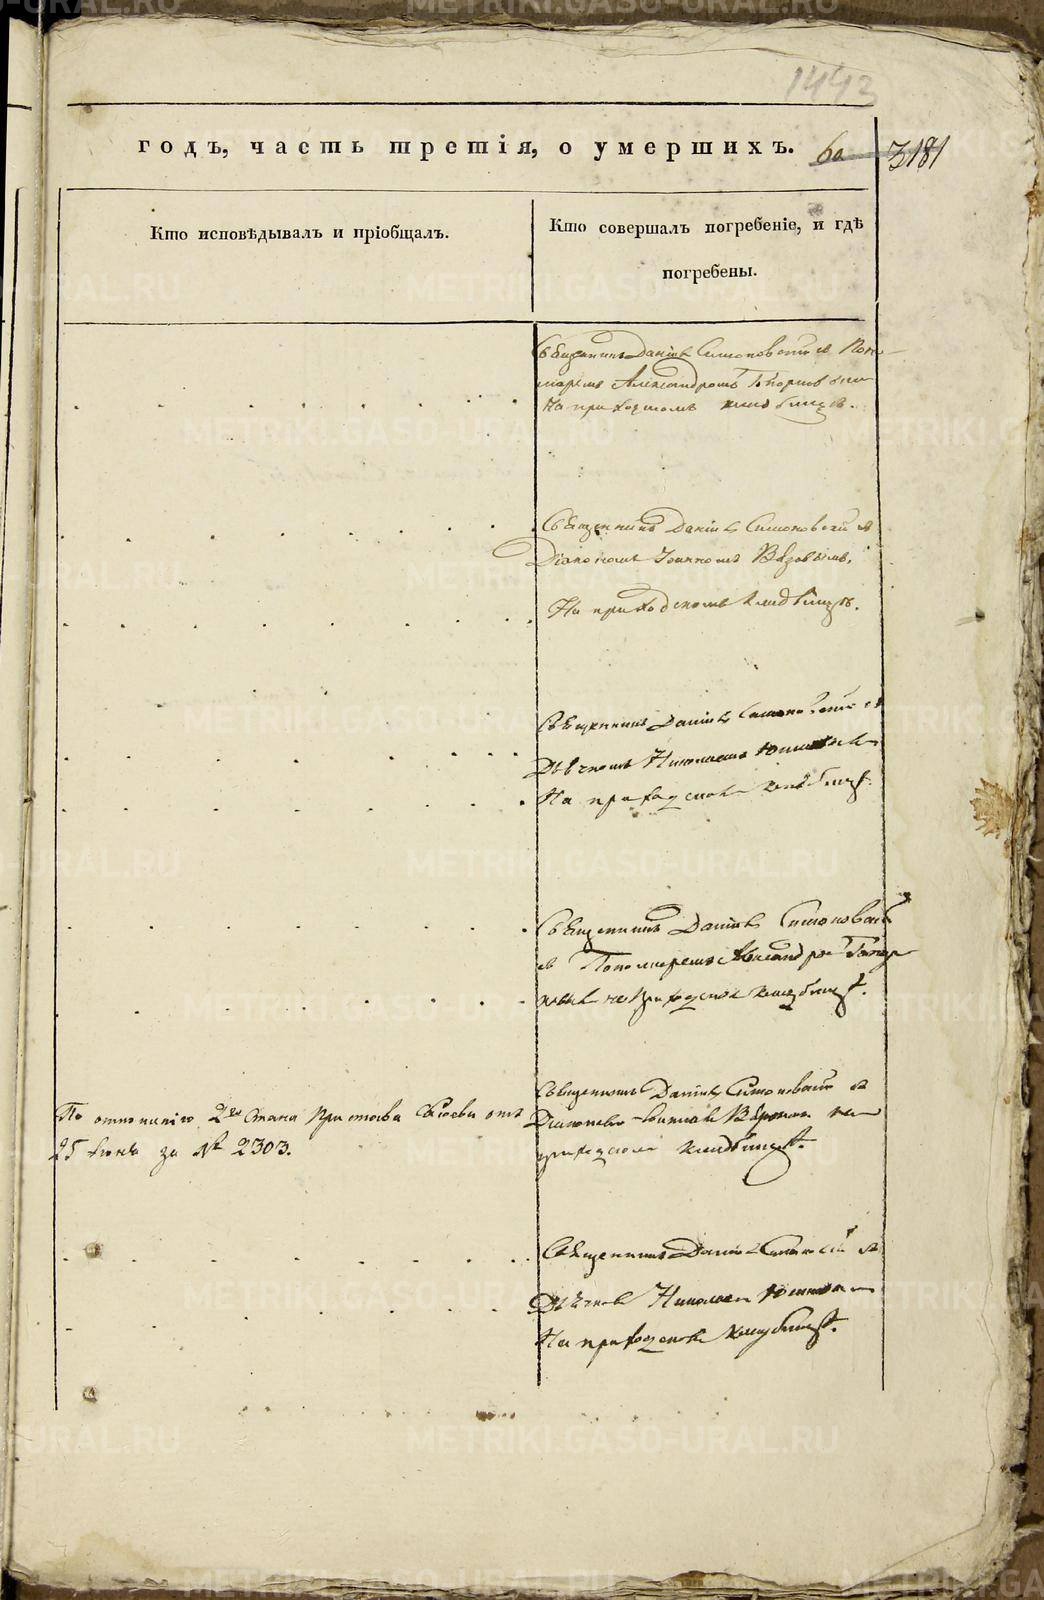 1443
годъ, часть третія, о умершихъ.
60
3181
Кто исповѣдывалъ и пріобщалъ.
Кто совершалъ погребеніе, и гдѣ
погребены.
Священникъ Даніилъ Симоновскій съ Поно-
маремъ Александромъ
На приходскомъ кладбищѣ.
Священникъ Даніилъ Симоновскій съ
Діакономъ Іоанномъ
На приходскомъ кладбищѣ.
Священникъ Даніилъ Симоновскій съ
Дьячкомъ Николаемъ
На приходскомъ кладбищѣ.
Священникъ Даніилъ Симоновскій
съ Пономаремъ Александромъ
на приходскомъ кладбищѣ.
По отношенію 2го Стана Пристава отъ
25 Іюня за № 2303.
Священникъ Даніилъ Симоновскій съ
Діакономъ Іоанномъ на
приходскомъ кладбищѣ.
Священникъ Даніилъ Симоновскій съ
Дьячкомъ Николаемъ
На приходскомъ кладбищѣ.
METRIKI.GASO-URAL.RU